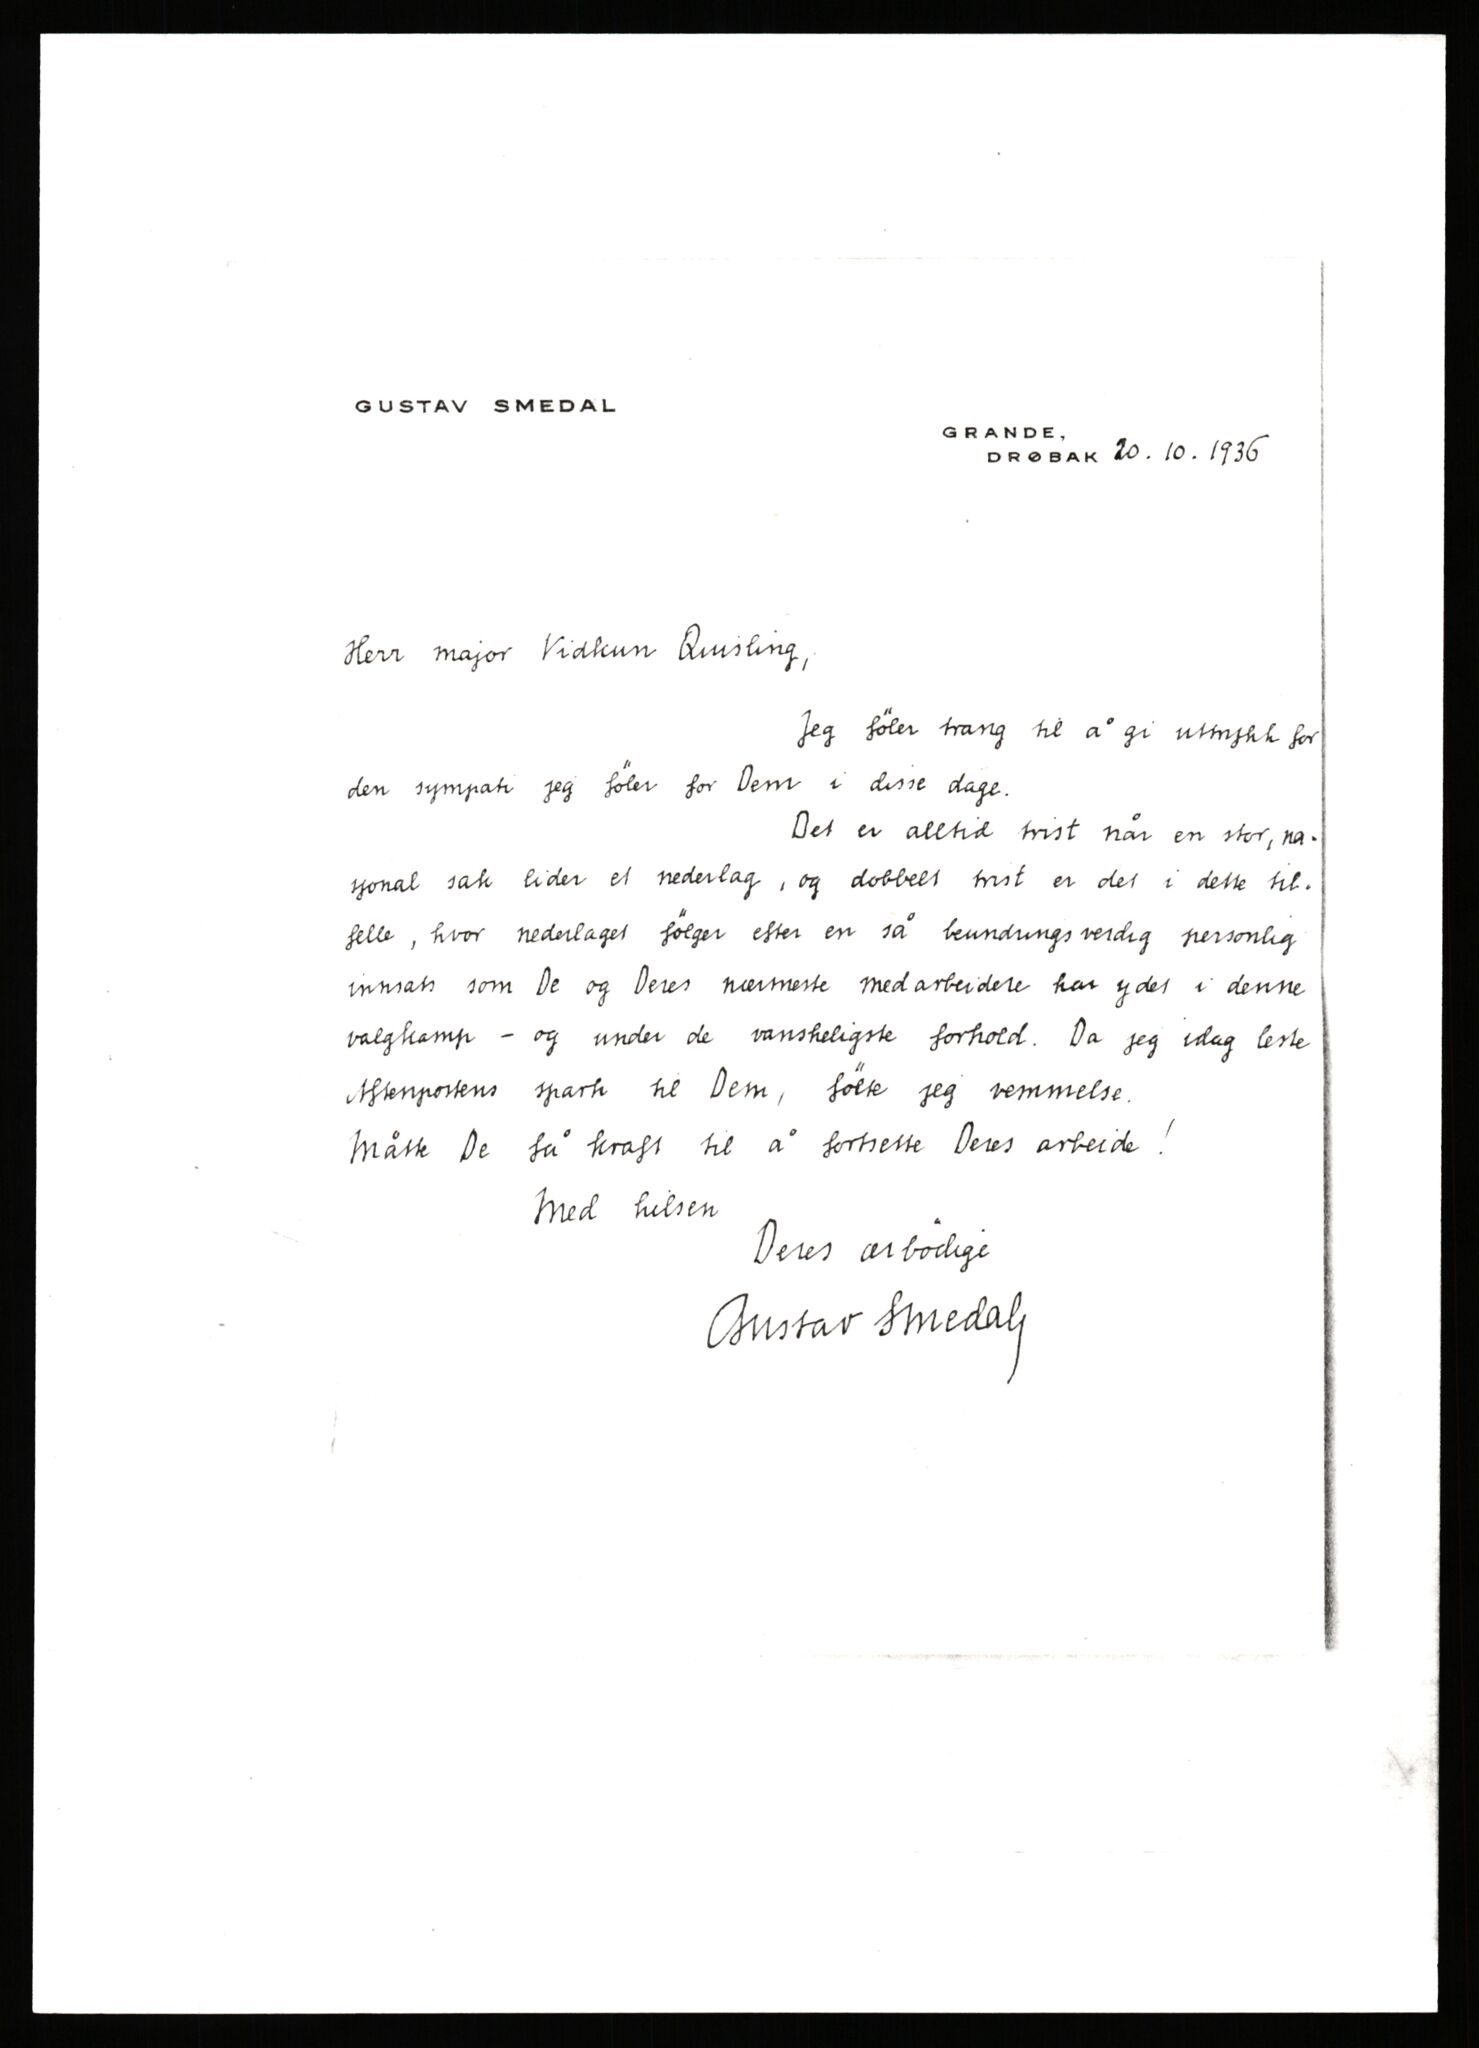 GUSTAV SMEDAL
GRANDE,
DRØBAK 20.10.1936
Herr major Vidkun Quisling,
Jeg föler trang til å gi uttrykk for
den sympati jeg föler for Dem i disse dage.
Det er alltid trist når en stor, na-
sjonal sak lider et nederlag, og dobbelt trist er det i dette til-
felle, hvor nederlaget fölger efter en så beundringsverdig personlig
innsats som De og Deres nærmeste medarbeidere har ydet i denne
valgkamp – og under de vanskeligste forhold. Da jeg idag leste
Aftenpostens spark til Dem, fölte jeg vemmelse.
Måtte De få kraft til å fortsette Deres arbeide!
Med hilsen
Deres ærbödige
Gustav Smedal